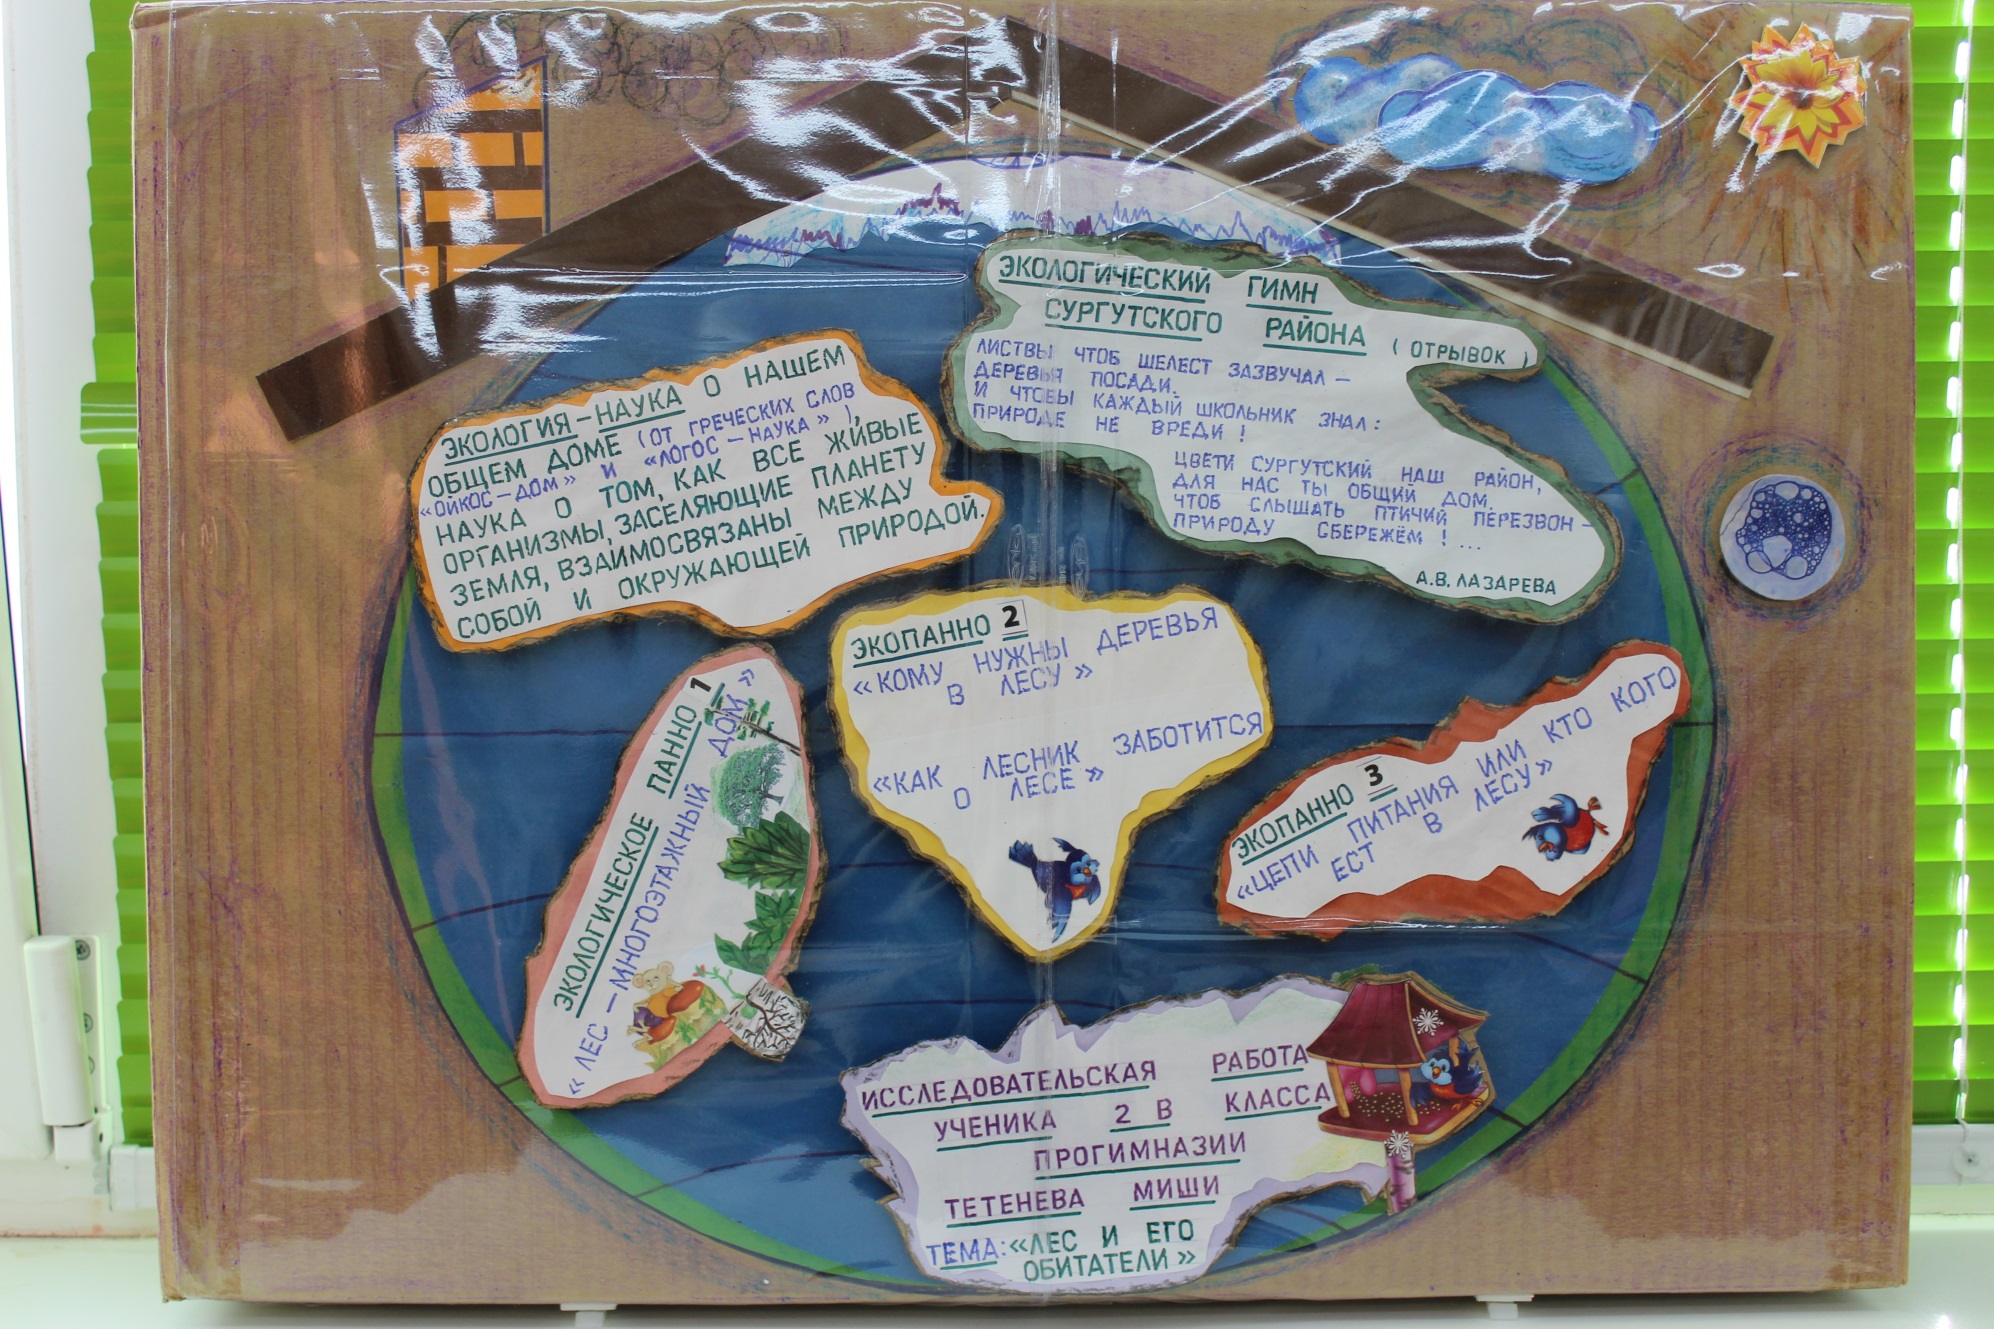 ЭКОЛОГИЧЕСКИЙ ГИМН
СУРГУТСКОГО РАЙОНА (ОТРЫВОК)
ЛИСТВЫ ЧТОБ ШЕЛЕСТ ЗАЗВУЧАЛ –
ДЕРЕВЬЯ ПОСАДИ.
И ЧТОБЫ КАЖДЫЙ ШКОЛЬНИК ЗНАЛ:
ПРИРОДЕ НЕ ВРЕДИ!
ЦВЕТИ СУРГУТСКИЙ НАШ РАЙОН,
ДЛЯ НАС ТЫ ОБЩИЙ ДОМ.
ЧТОБ СЛЫШАТЬ ПТИЧИЙ ПЕРЕЗВОН –
ПРИРОДУ СБЕРЕЖЁМ!...
А.В. ЛАЗАРЕВА
ЭКОЛОГИЯ – НАУКА О НАШЕМ
ОБЩЕМ ДОМЕ (ОТ ГРЕЧЕСКИХ СЛОВ
«ОЙКОС – ДОМ» И «ЛОГОС – НАУКА»),
НАУКА О ТОМ, КАК ВСЕ ЖИВЫЕ
ОРГАНИЗМЫ, ЗАСЕЛЯЮЩИЕ ПЛАНЕТУ
ЗЕМЛЯ, ВЗАИМОСВЯЗАНЫ МЕЖДУ
СОБОЙ И ОКРУЖАЮЩЕЙ ПРИРОДОЙ.
ЭКОЛОГИЧЕСКОЕ ПАННО 1
«ЛЕС – МНОГОЭТАЖНЫЙ ДОМ»
ЭКОПАННО 2
«КОМУ НУЖНЫ ДЕРЕВЬЯ
В ЛЕСУ»
«КАК ЛЕСНИК ЗАБОТИТСЯ
О ЛЕСЕ»
ЭКОПАННО 3
«ЦЕПИ ПИТАНИЯ ИЛИ КТО КОГО
ЕСТ В ЛЕСУ»
ИССЛЕДОВАТЕЛЬСКАЯ РАБОТА
УЧЕНИКА 2 В КЛАССА
ПРОГИМНАЗИИ
ТЕТЕНЕВА МИШИ
ТЕМА: «ЛЕС И ЕГО
ОБИТАТЕЛИ»